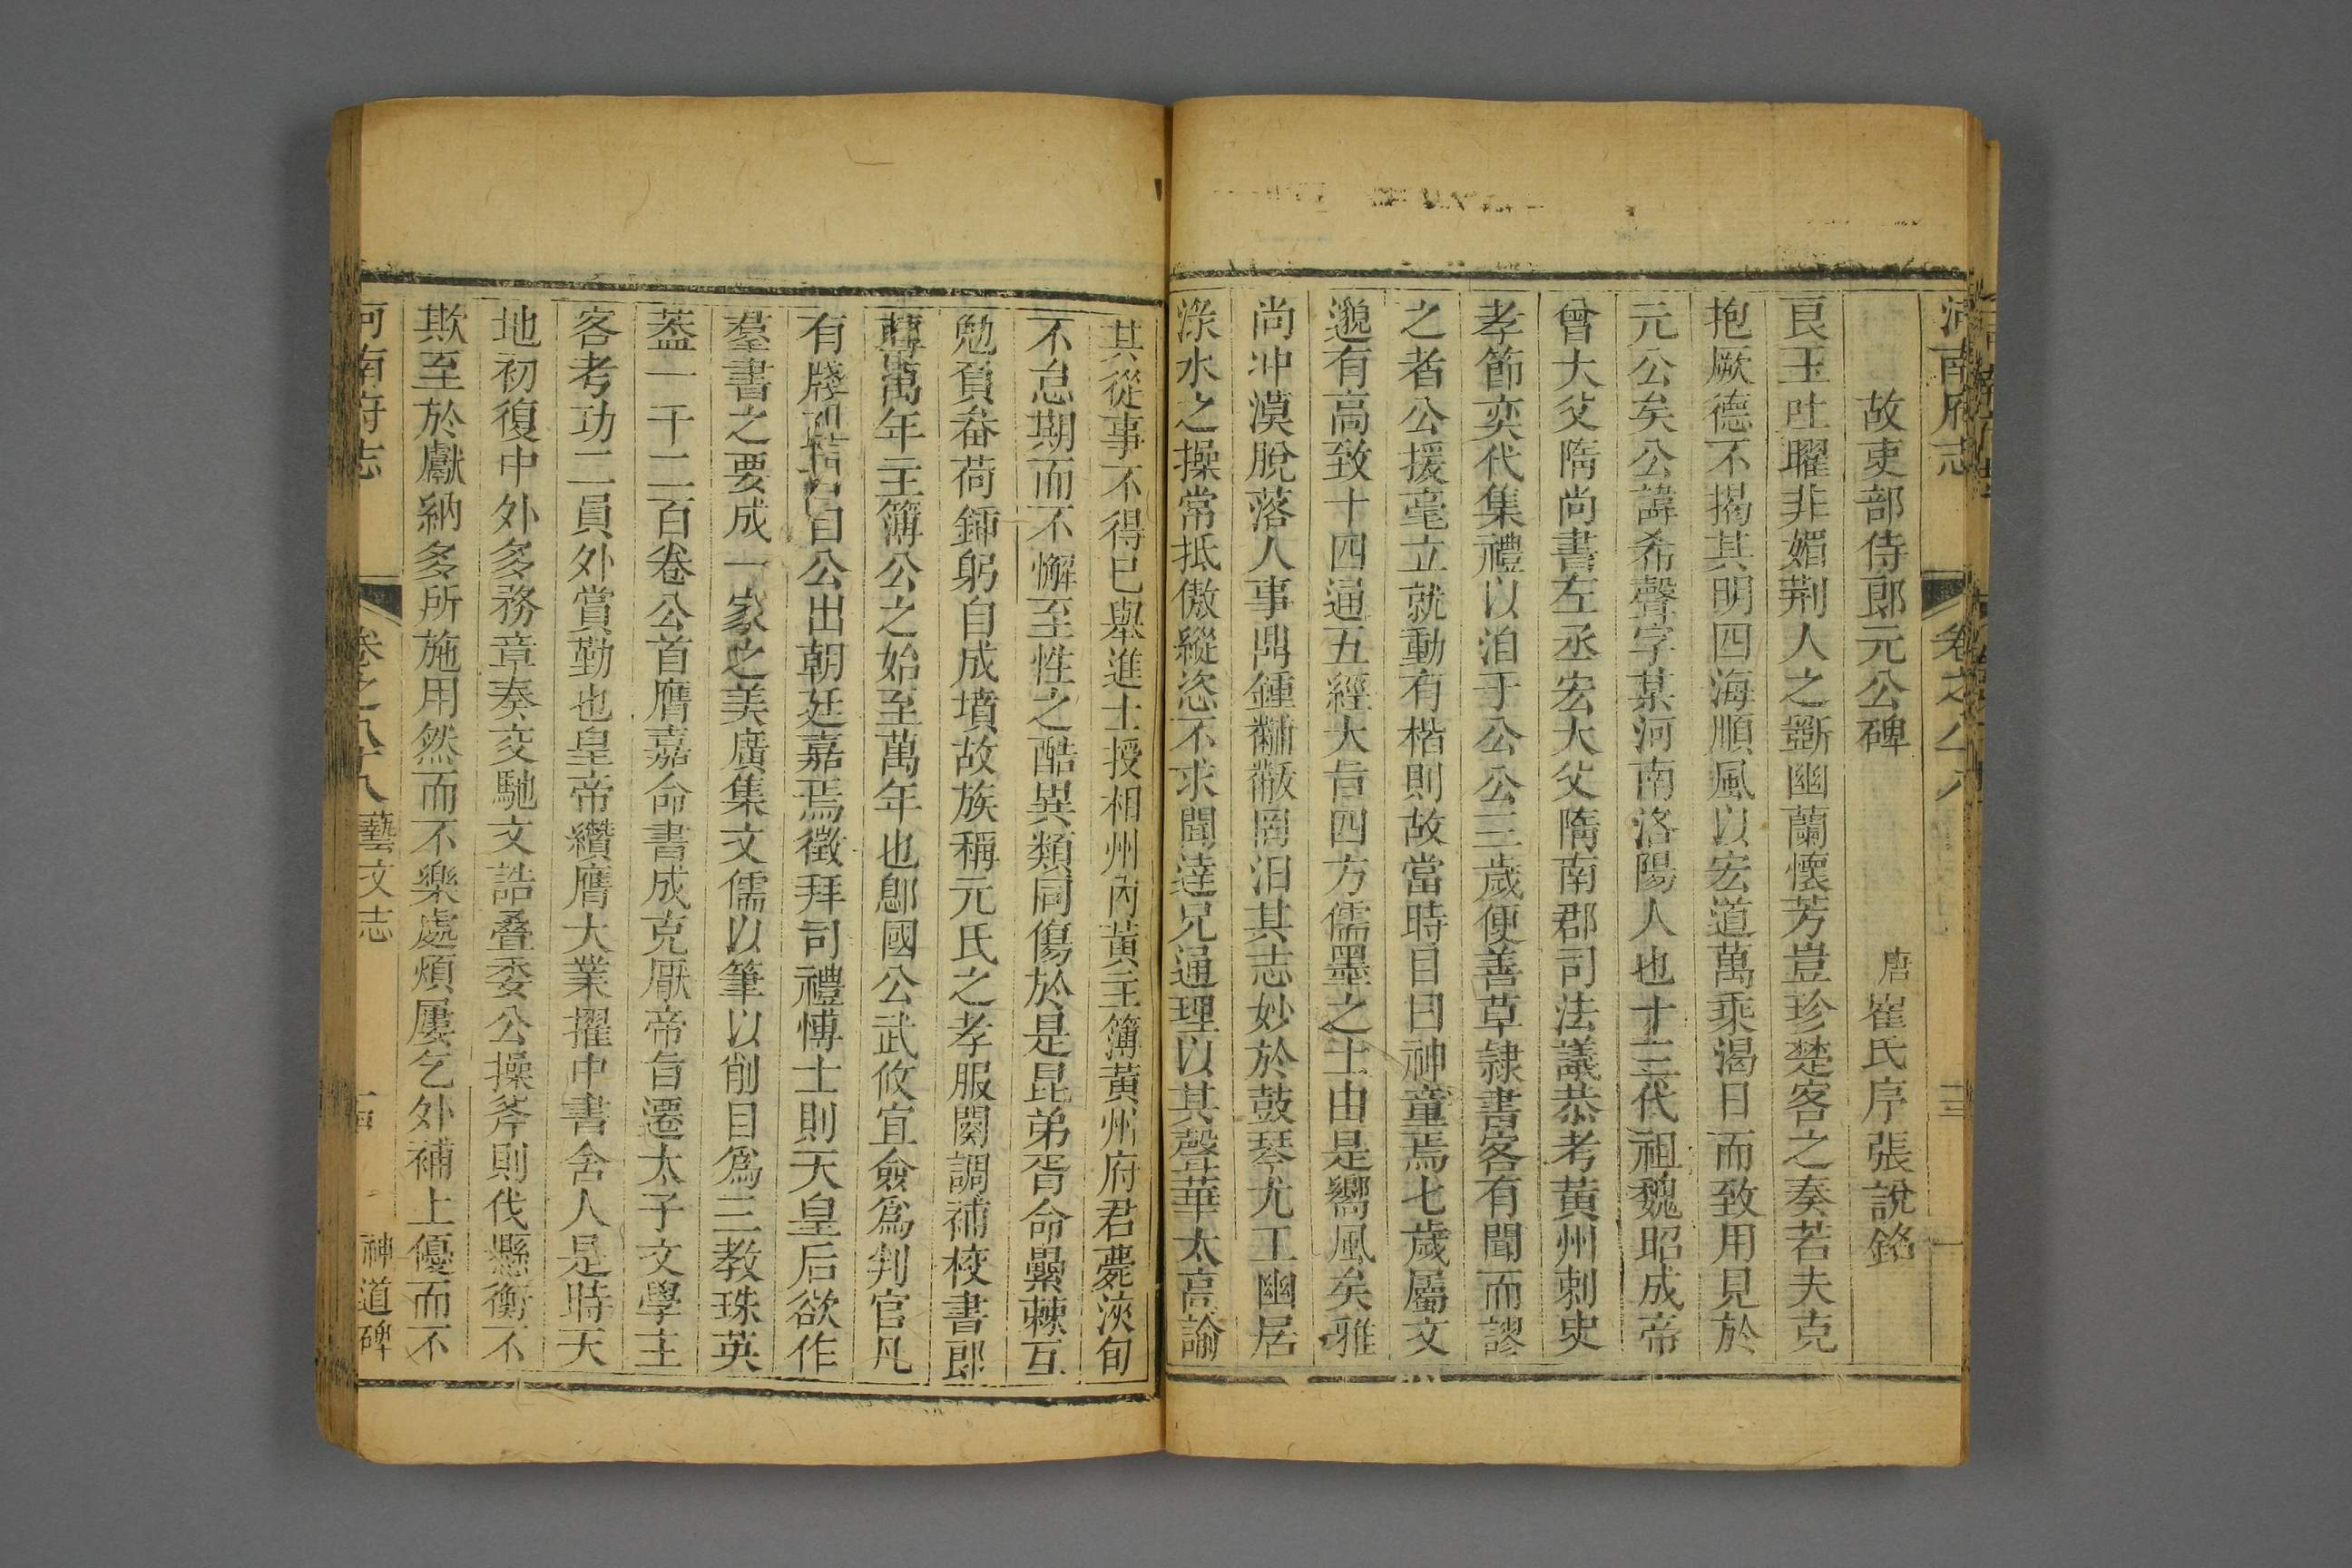 河南府志 卷之八十八
故吏部侍郎元公碑
唐崔氏序張說銘
良玉吐曜非媚荆人之斵幽蘭懷芳豈珍楚客之奏若夫克
抱厥德不揭其明四海順風以宏道萬乘渴日而致用見於
元公矣公諱希聲字某河南洛陽人也十三代祖魏昭成帝
曾大父隋尚書左丞宏大父隋南郡司法議恭考黄州刺史
孝節奕代集禮以洎于公公三歲便善草隸書客有聞而謬
之者公援毫立就動有楷則故當時目曰神童焉七歲屬文
邈有高致十四通五經大旨四方儒墨之士由是嚮風矣雅
尚冲漠脫落人事鼎鍾黼黻罔汨其志妙於鼓琴尤工幽居
淥水之操常抵傲縱恣不求聞達兄通理以其聲華太高諭
其從事不得已舉進士授相州內黃主簿黃州府君薨浹旬
不怠期而不懈至性之酷異類同傷於是昆弟胥命纍棘互
勉負畚荷鍤躬自成墳故族稱元氏之孝服闋調補校書郎
轉萬年主簿公之始至萬年也郕國公武攸宜僉爲判官凡
有牋自公出朝廷嘉焉徵拜司禮博士則天皇后欲作
羣書之要成一家之美廣集文儒以筆以削目爲三教珠英
葢一千二百卷公首膺嘉命書成克厭帝旨遷太子文學主
客考功二員外賞勤也皇帝纘膺大業擢中書舍人是時天
地初復中外多務章奏交馳文誥叠委公操斧則伐懸衡不
欺至於獻納多所施用然而不樂處煩屢乞外補上優而不
河南府志 卷之八十八 藝文志 神道碑